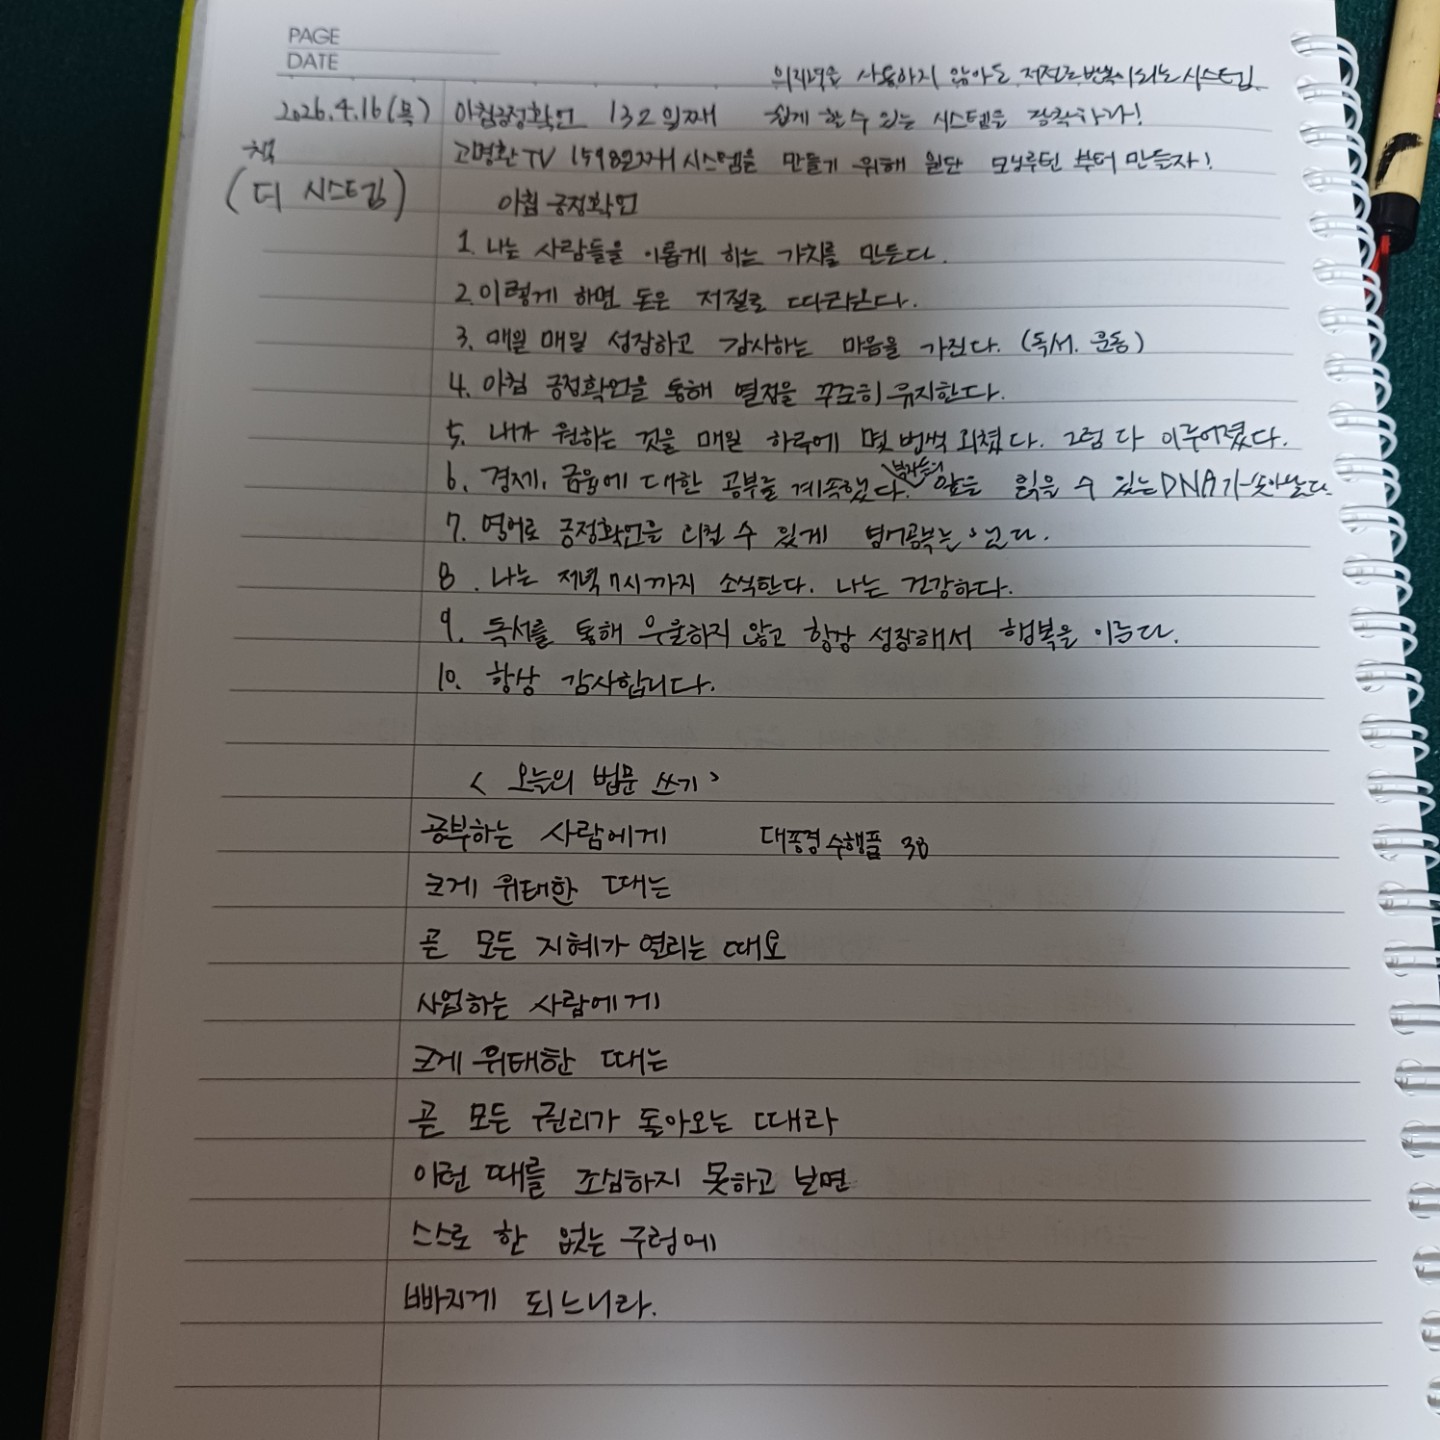 PAGE
DATE
의지력을 사용하지 않아도 저절로 반복이 되는 시스템
2026.4.16(목) 아침긍정확언 132일째 쉽게 할 수 있는 시스템을 장착하라!
책 고명환TV 1598회차 시스템을 만들기 위해 일단 모닝루틴 부터 만들자!
(더 시스템) 아침 긍정확언
1. 나는 사람들을 이롭게 하는 가치를 만든다.
2. 이렇게 하면 돈은 저절로 따라온다.
3. 매일 매일 성장하고 감사하는 마음을 가진다. (독서. 운동)
4. 아침 긍정확언을 통해 열정을 꾸준히 유지한다.
5. 내가 원하는 것을 매일 하루에 몇 번씩 외쳤다. 그럼 다 이루어졌다.
6. 경제, 금융에 대한 공부를 계속했다. 앞을 읽을 수 있는 DNA가 솟아났다.
7. 영어로 긍정확언을 외칠 수 있게 영어공부는
8. 나는 저녁 7시까지 소식한다. 나는 건강하다.
9. 독서를 통해 우울하지 않고 항상 성장해서 행복을 이룬다.
10. 항상 감사합니다.
< 오늘의 법문 쓰기 >
공부하는 사람에게 대종경 수행품 38
크게 위태한 때는
곧 모든 지혜가 열리는 때요
사업하는 사람에게
크게 위태한 때는
곧 모든 권리가 돌아오는 때라
이런 때를 조심하지 못하고 보면
스스로 한 없는 구렁에
빠지게 되느니라.